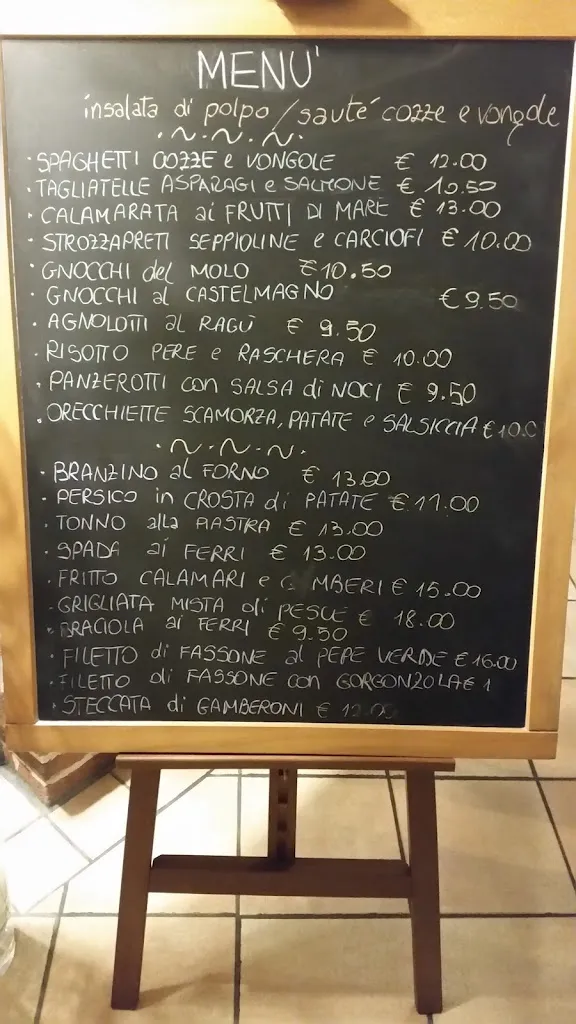 MENU'
insalata di polpo / sauté cozze e vongole
· SPAGHETTI COZZE e VONGOLE € 12.00
· TAGLIATELLE ASPARAGI e SALMONE € 10.50
· CALAMARATA ai FRUTTI DI MARE € 13.00
· STROZZAPRETI SEPPIOLINE e CARCIOFI € 10.00
· GNOCCHI del MOLO € 10.50
· GNOCCHI al CASTELMAGNO € 9.50
· AGNOLOTTI al RAGÙ € 9.50
· RISOTTO PERE e RASCHERA € 10.00
· PANZEROTTI con SALSA di NOCI € 9.50
· ORECCHIETTE SCAMORZA, PATATE e SALSICCIA € 10.0
· BRANZINO al FORNO € 13.00
· PERSICO in CROSTA di PATATE € 11.00
· TONNO alla PIASTRA € 13.00
· SPADA ai FERRI € 13.00
· FRITTO CALAMARI e G MBERI € 15.00
· GRIGLIATA MISTA di PESCE € 18.00
· BRACIOLA ai FERRI € 9.50
· FILETTO di FASSONE al PEPE VERDE € 16.00
· FILETTO di FASSONE con GORGONZOLA € 1
· STECCATA di GAMBERONI € 12.00